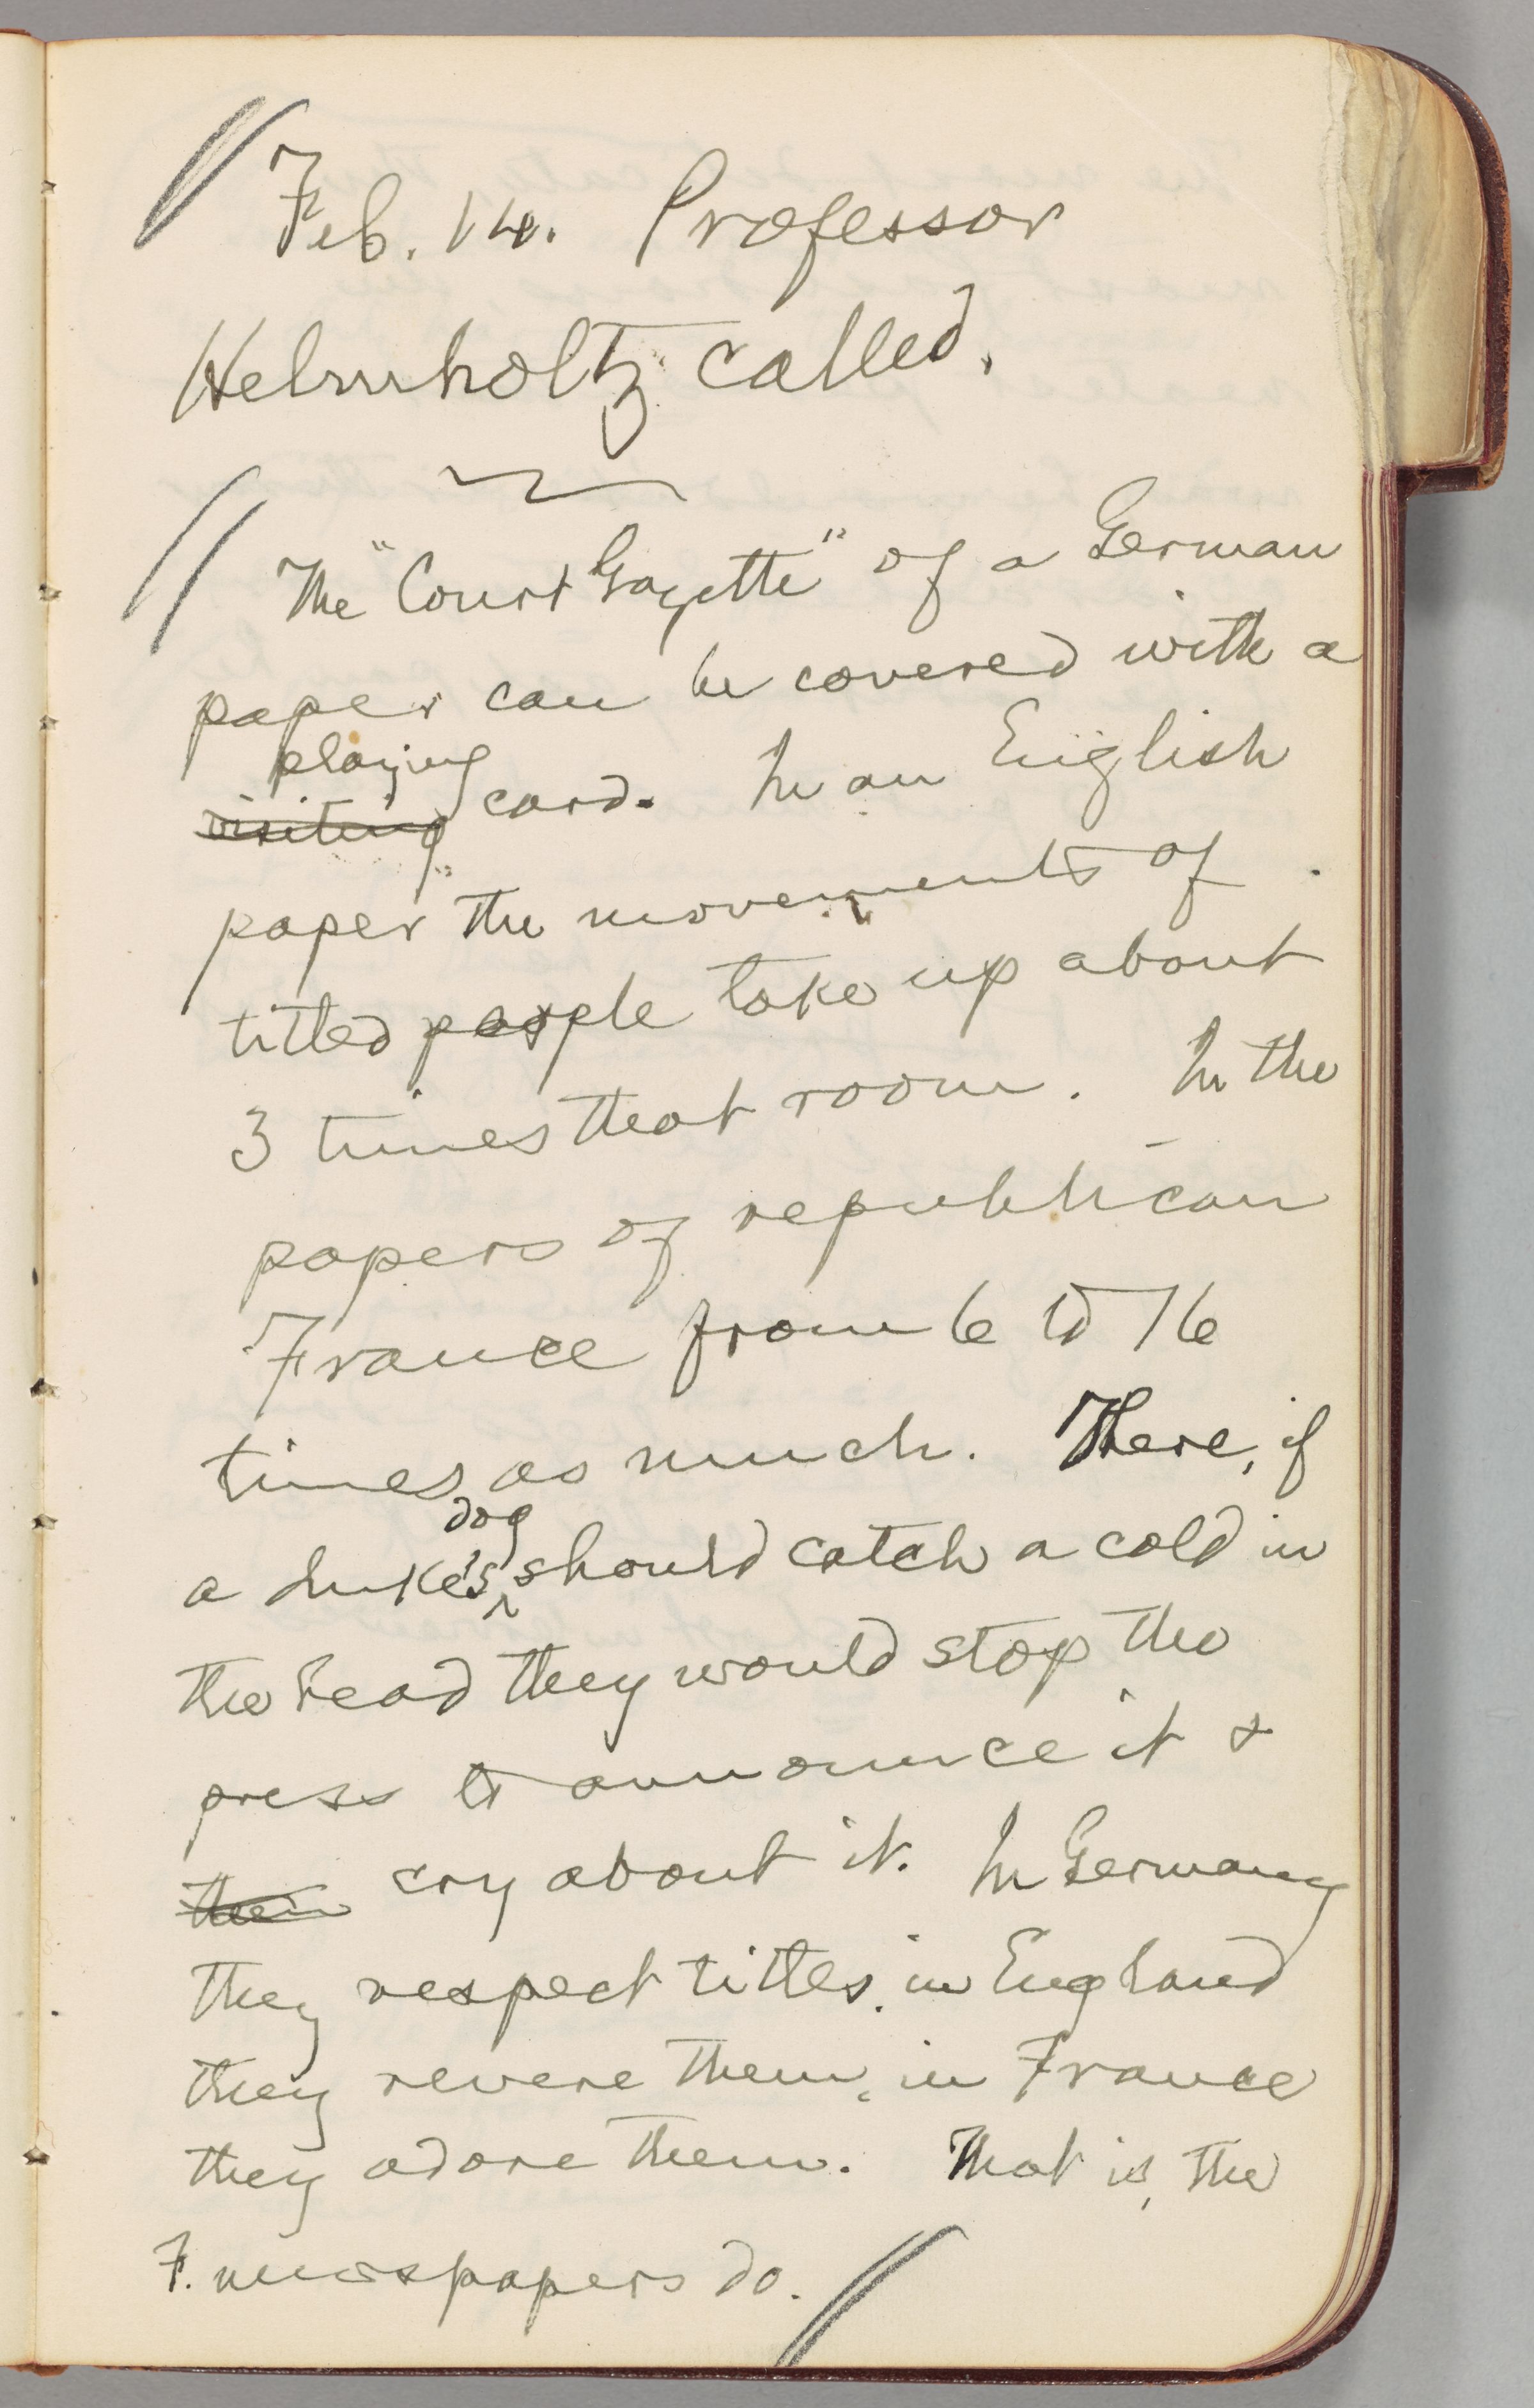 Feb. 14. Professor
Helmholtz called.
The "Court Gazette" of a German
paper can be covered with a
playing
visiting card. In an English
paper "the movements of
titled people take up about
3 times that room. In the
papers of republican
France from 6 to 16
times as much. There, if
dog
a duke's ^ should catch a cold in
the head they would stop the
press to announce it &
cry about it. In Germany
they respect titles, in England
they revere them, in France
they adore them. That is, the
F. newspapers do.